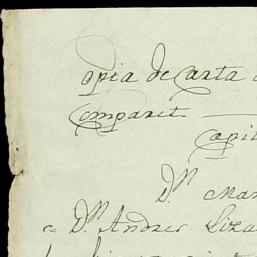 opia de Carta
Comparet.
Capit
D.n Man
= D.n Andres Liza